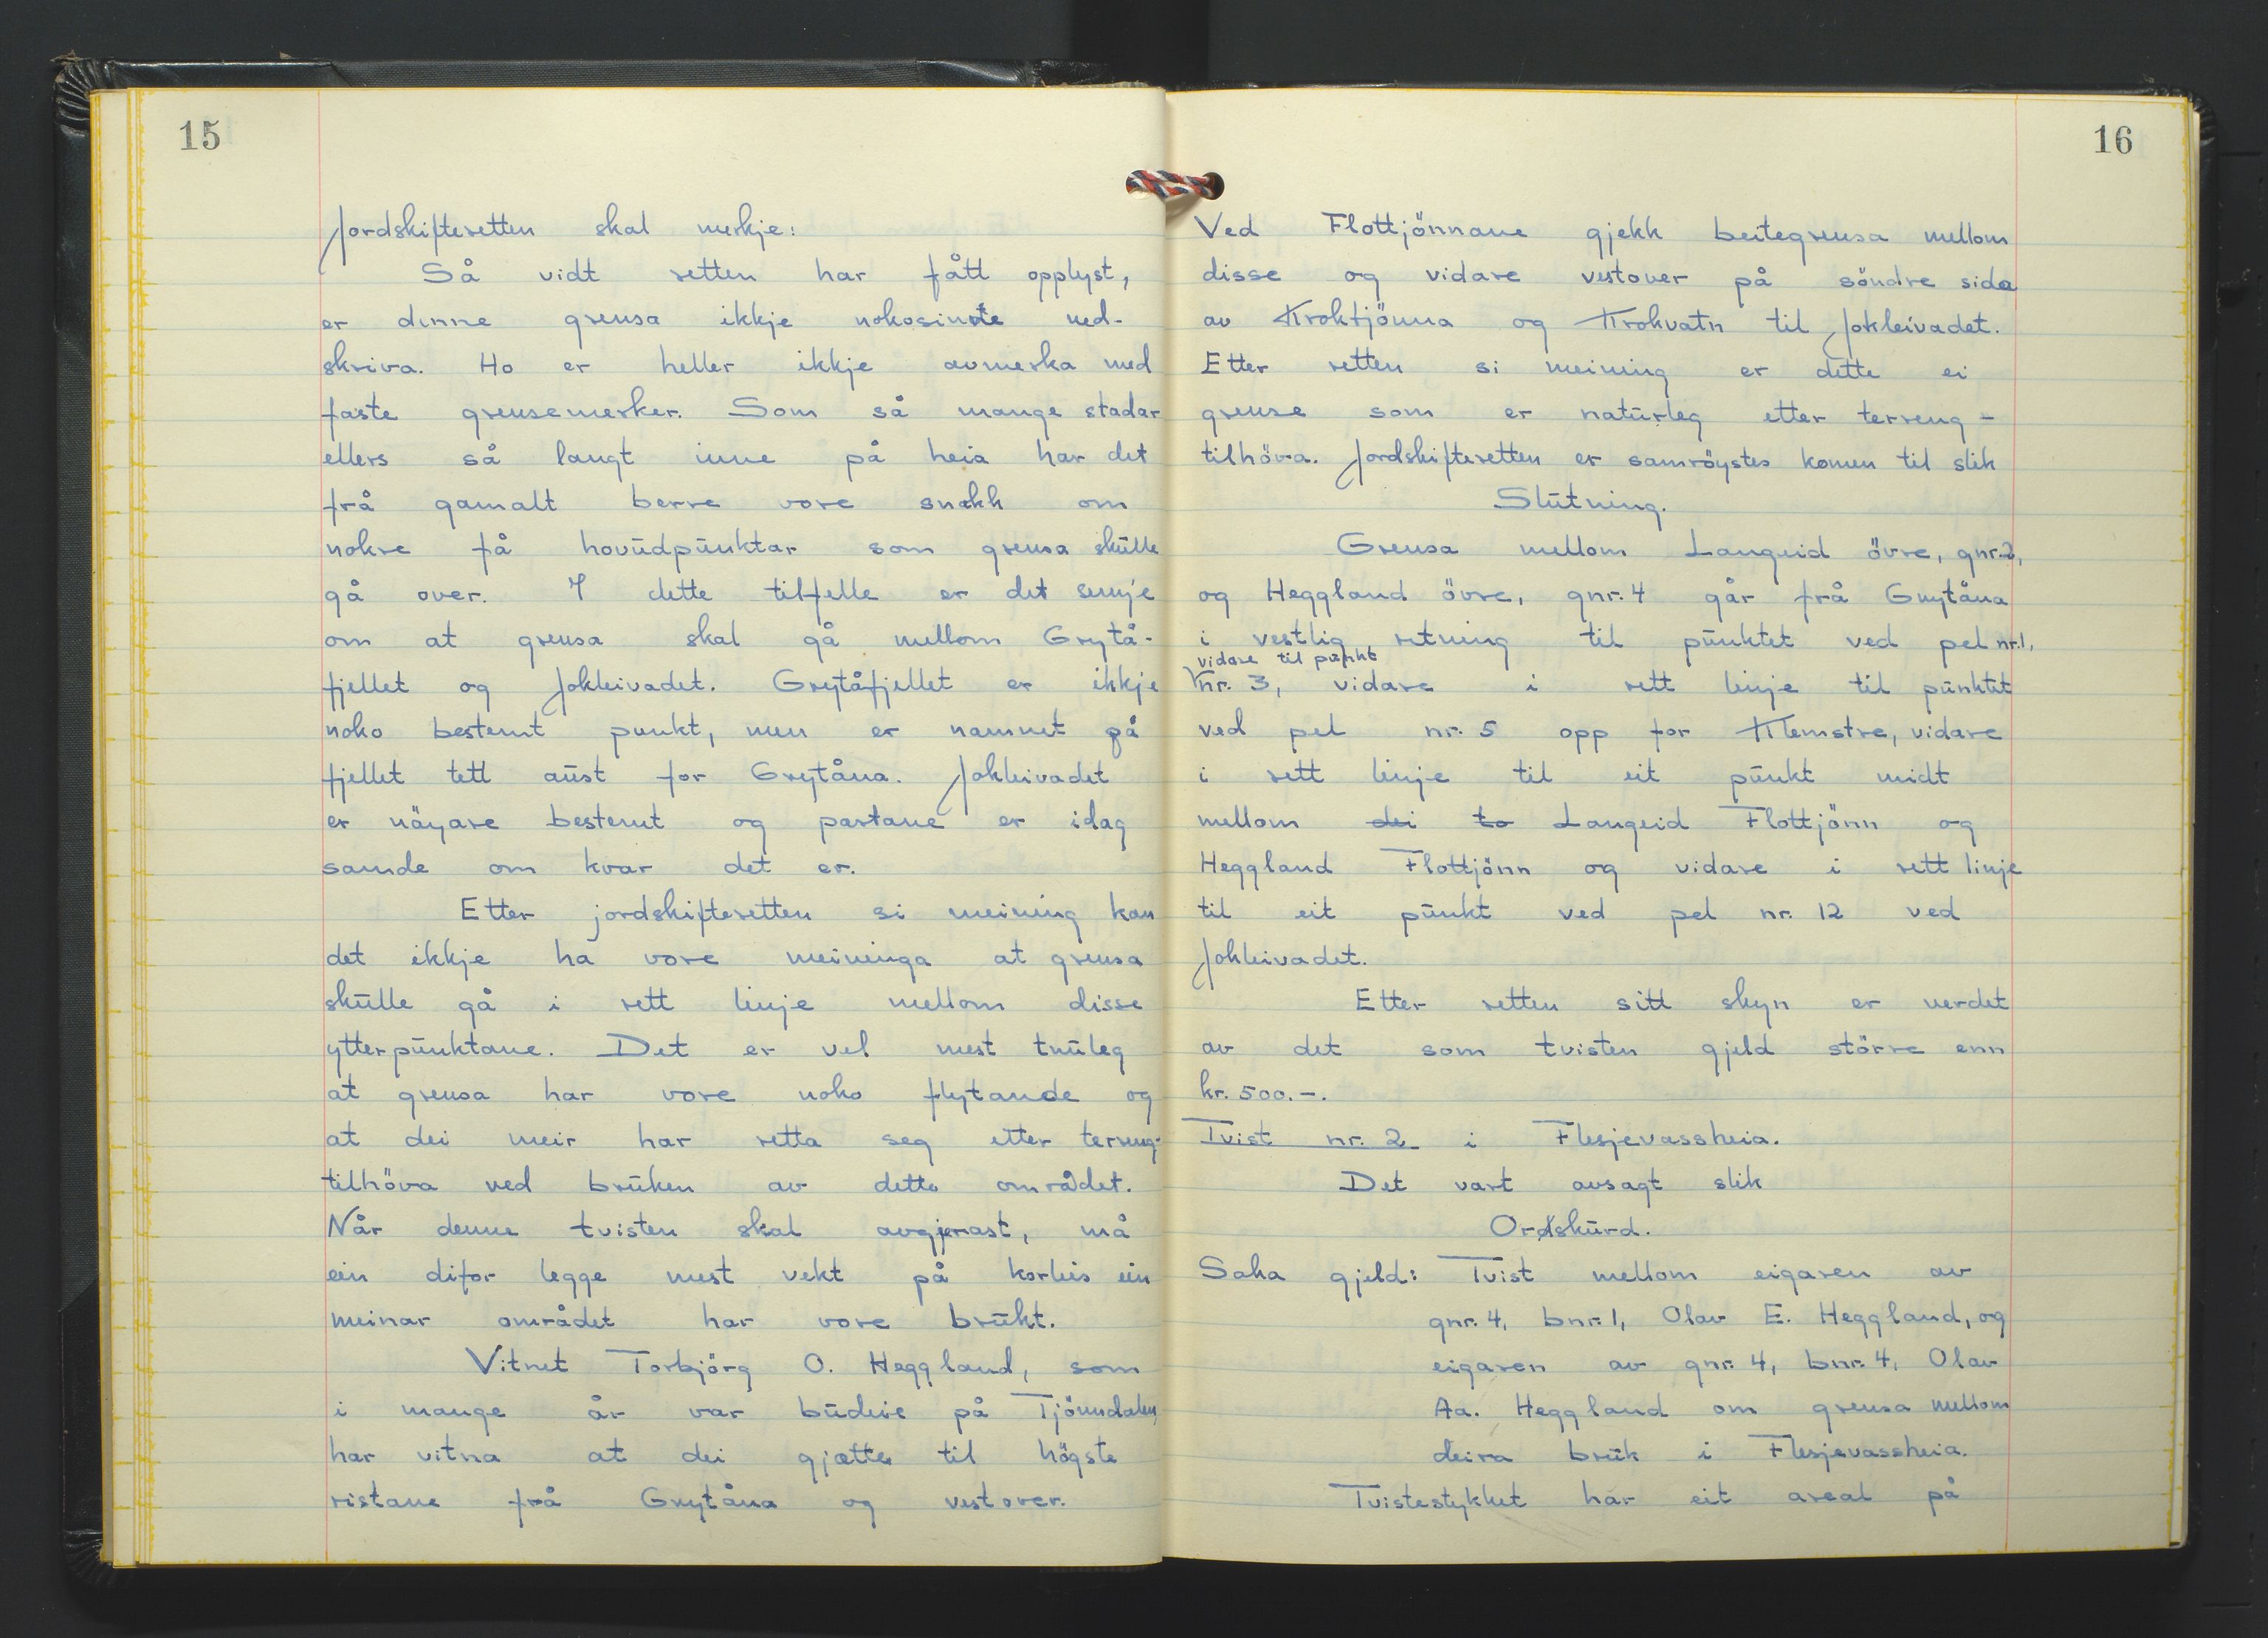 15
Jordskifteretten skal merkje:
Så vidt retten har fått opplyst,
er denne grensa ikkje nokosinde ned-
skriva. Ho er heller ikkje avmerka med
faste grensemerker. Som så mange stadar
ellers så langt inne på heia har det
frå gamalt berre vore snakk om
nokre få hovudpunktar som grensa skulle
gå over. I dette tilfelle er det semje
om at grensa skal gå mellom Grytå-
fjellet og Jokleivadet. Grytåfjellet er ikkje
noko bestemt punkt, men er namnet på
fjellet tett aust for Grytåna. Jokleivadet
er nöyare bestemt og partane er idag
samde om kvar det er.
Etter jordskifteretten si meining kan
det ikkje ha vore meininga at grensa
skulle gå i rett linje mellom disse
ytterpunktane. Det er vel mest truleg
at grensa har vore noko flytande og
at dei meir har retta seg etter terreng-
tilhöva ved bruken av dette området.
Når denne tvisten skal avgjerast, må
ein difor legge mest vekt på korleis ein
meinar området har vore brukt.
Vitnet Torbjörg O. Heggland, som
i mange år var budeie på Tjönndalen,
har vitna at dei gjætte til högste
ristane frå Grytåna og vestover.
16
Ved Flottjönnane gjekk beitegrensa mellom
disse og vidare vestover på söndre sida
av Kroktjönna og Krokvatn til Jokleivadet.
Etter retten si meining er dette ei
grense som er naturleg etter terreng-
tilhöva. Jordskifteretten er samröystes komen til slik
Slutning.
Grensa mellom Langeid övre, gnr. 2,
og Heggland övre, gnr. 4 går frå Grytåna
i vestlig retning til punktet ved pel nr. 1,
vidare til punkt
nr. 3, vidare i rett linje til punktet
ved pel nr. 5 opp for Klemstre, vidare
i rett linje til eit punkt midt
mellom dei to Langeid Flottjönn og
Heggland Flottjönn og vidare i rett linje
til eit punkt ved pel nr. 12 ved
Jokleivadet.
Etter retten sitt skyn er verdet
av det som tvisten gjeld större enn
kr. 500.-.
Tvist nr. 2 i Flesjevassheia.
Det vart avsagt slik
Ordskurd.
Saka gjeld: Tvist mellom eigaren av
gnr. 4, bnr. 1, Olav E. Heggland, og
eigaren av gnr. 4, bnr. 4, Olav
Aa. Heggland om grensa mellom
deira bruk i Flesjevassheia.
Tvistestykket har eit areal på